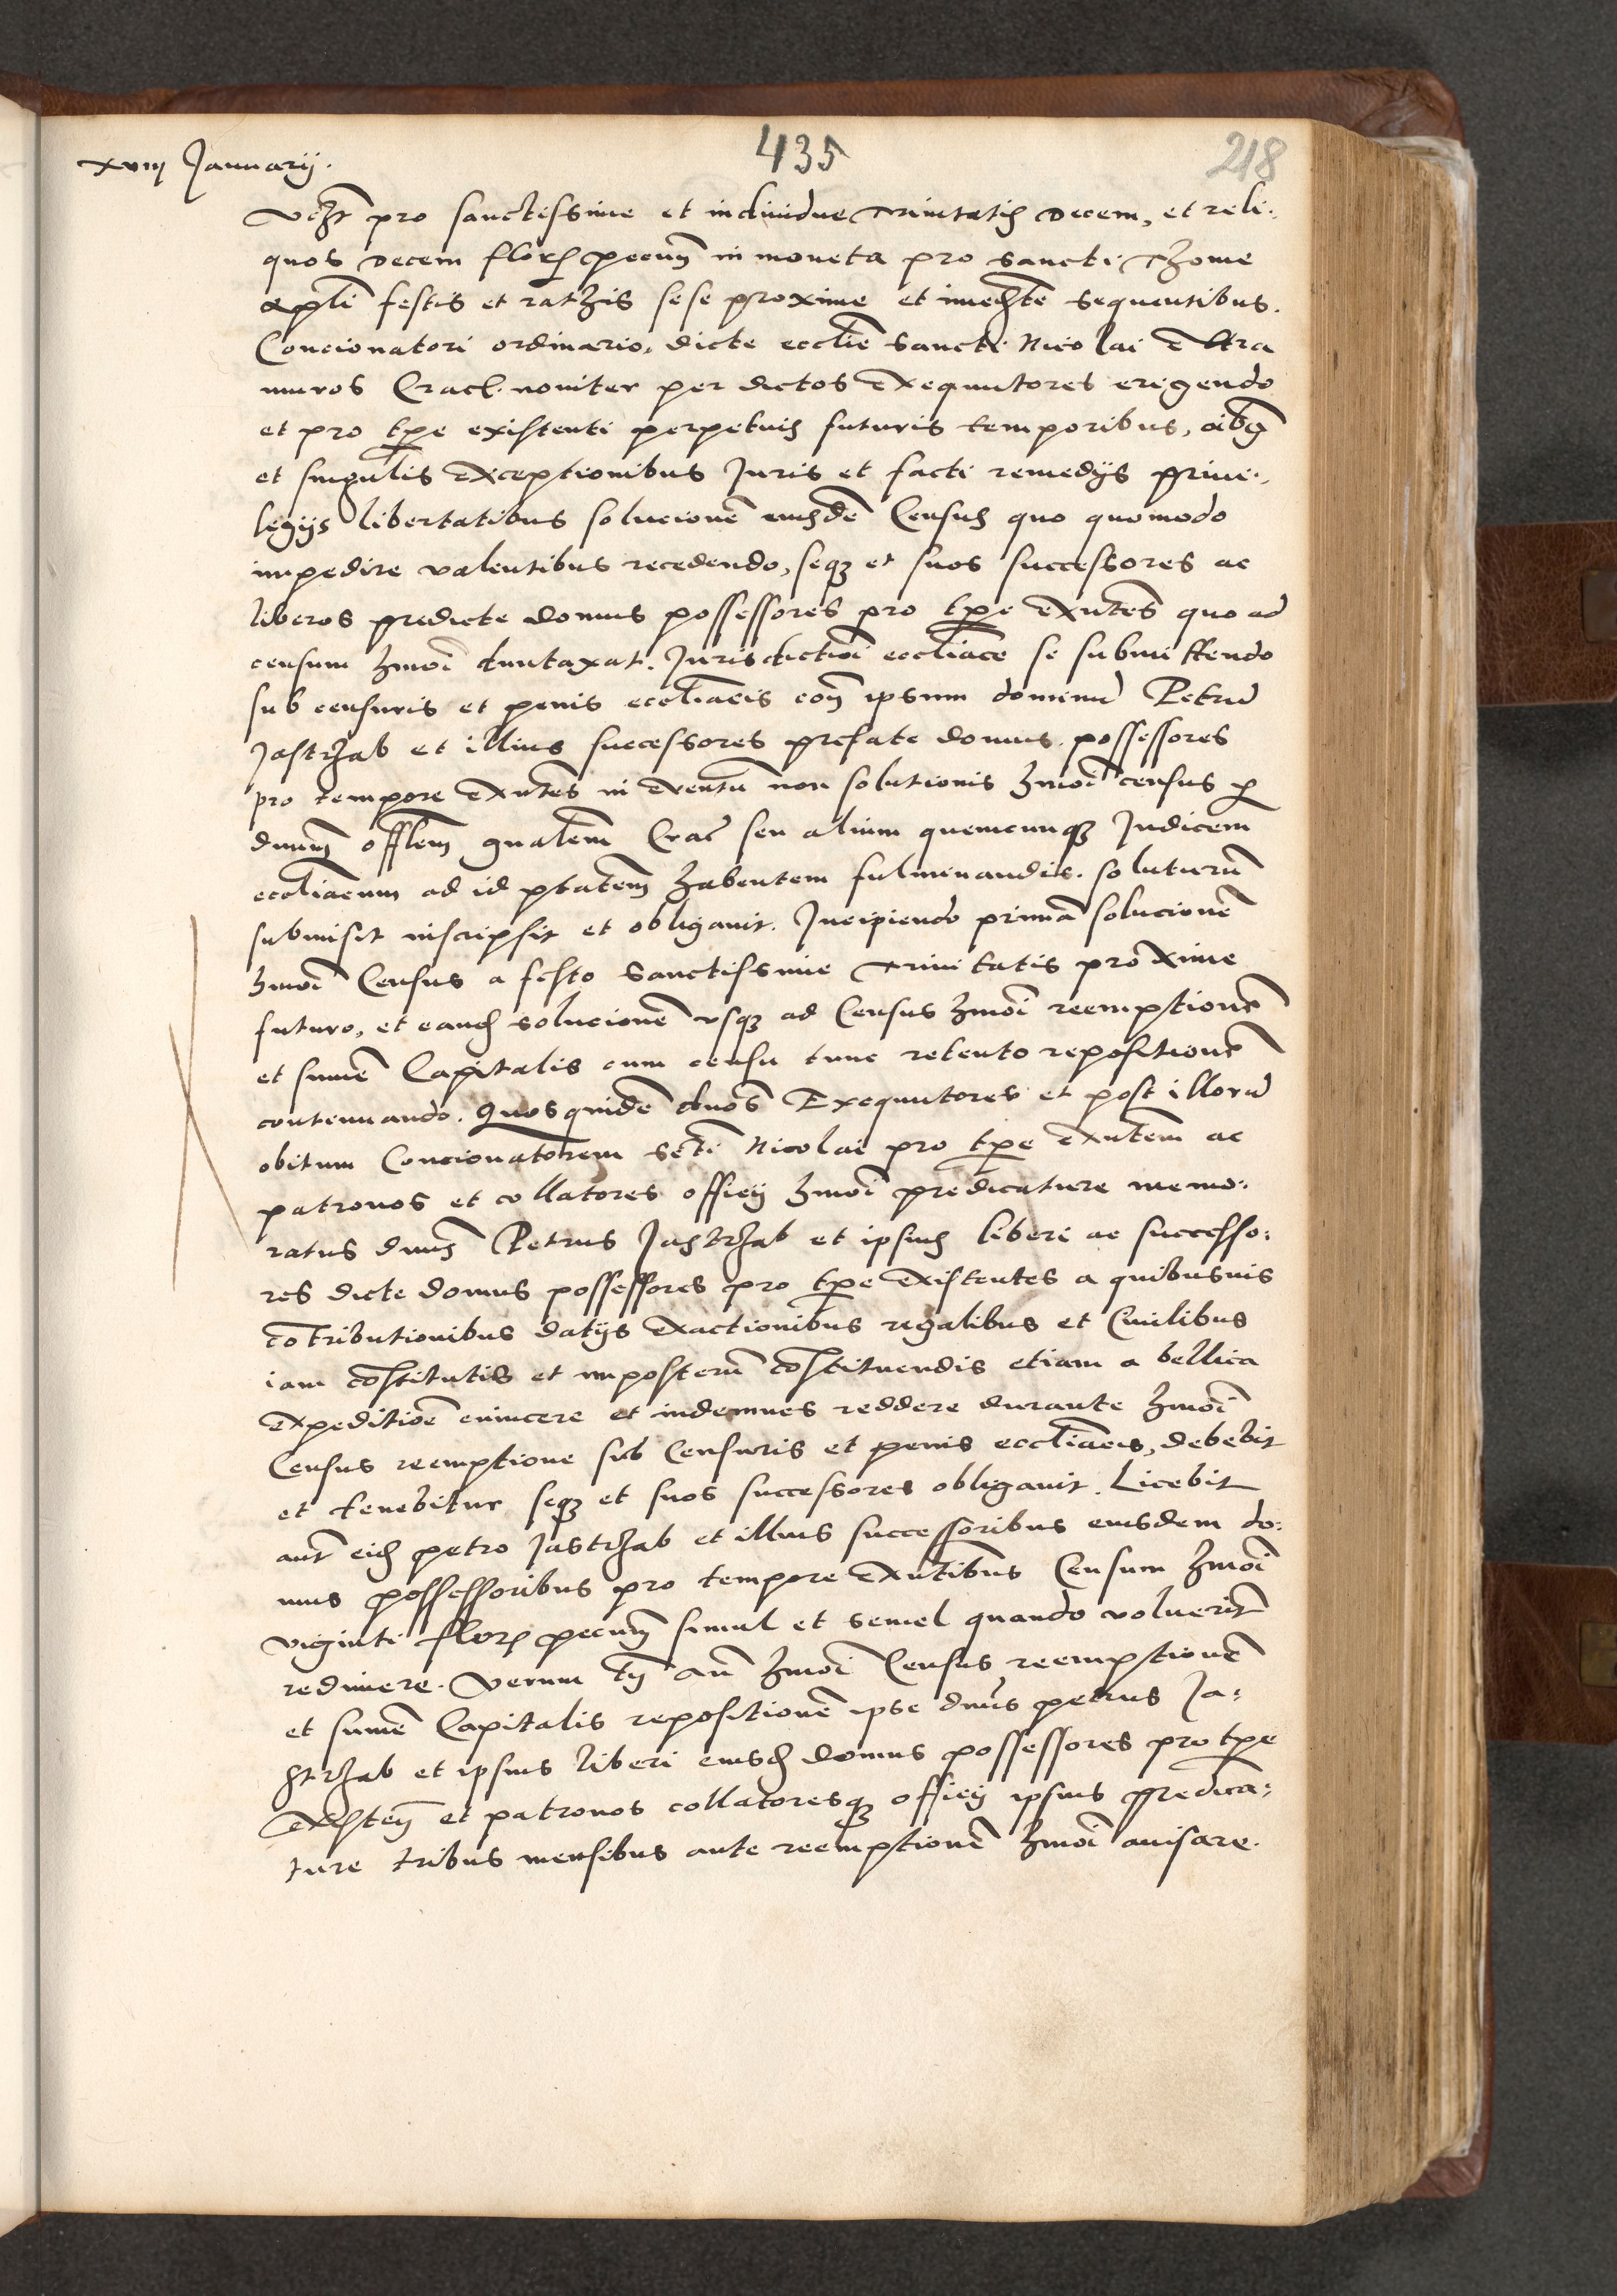 435
218
xviij Januarij.
vczt pro sanctissime et individue Trinitatis Decem, et reli:
quos Decem floren pecun in moneta pro sancti Thome
apli festis et rathis sese proxime et immediate sequentibus.
Concionatori ordinario, dicte ecclie sancti Nicolai extra
muros Crac. noviter per dictos exequutores erigendo
et pro tpe existenti perpetuis futuris temporibus, oibus
et singulis exceptionibus Juris et facti remedijs privi:
legijs libertatibus solucione eiusde Census quo quomodo
impedire valentibus recedendo, seqz et suos successores ac
liberos predicte domus possessores pro tpe exntes quo ad
censum hmoi duntaxat. Jurisdictioi eccliace se submittendo
sub censuris et penis eccliacis con ipsum dominu Petru
Jastrzab et illius successores prefate domus possessores
pro tempore exntes in eventu non solutionis hmoi census p
dnum offlem gnalem Crac seu alium quemcunqz Judicem
eccliacum ad id ptatem habentem fulminandis. soluturu
submisit inscripsit et obligavit. Incipiendo prima solucione
hmoi Census a festo sanctissime Trinitatis proxime
futuro, et eand solucione usqz ad Census hmoi reemptione
et sume Capitalis cum censu tunc retento repositione
continuando. Quosquide dnos Exequutores et post illoru
obitum Concionatorem scti Nicolai pro tpe exntem ac
patronos et collatores officij hmoi predicature memo:
ratus dnus Petrus Jastrzab et ipsius liberi ac successo:
res dicte domus possessores pro tpe existentes a quibusvis
cotributionibus datijs exactionibus regalibus et Civilibus
iam costitutis et imposteru costituendis etiam a bellica
expeditioe evincere et indemnes reddere durante hmoi
Census reemptione sub Censuris et penis eccliacis, debebit
et tenebitur seqz et suos successores obligavit. Licebit
aut eid petro Jastrzab et illius successoribus eiusdem do:
mus possessoribus pro tempore exntibus Censum hmoi
viginti floren pecun simul et semel quando voluerint
redimere. Verum tn an hmoi Census reemptione
et sume Capitalis repositione ipse dnus petrus Ja:
strzab et ipsius liberi eiusd domus possessores pro tpe
existen et patronos collatoresqz officij ipsius predica:
ture tribus mensibus ante reemptione hmoi avisare.